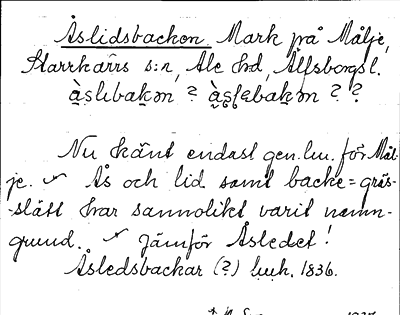 Åslidsbacken Mark på Målje,
Starrkärrs s:n, Ale hd, Älfsborgs l.
Nu känt endast gen. luu. för Mål-
je. Ås och lid samt backe = gräs-
-slätt har sannolikt varit namn-
grund. Jämför Åsledet!
Åsledsbackar (?) luuh. 1836.